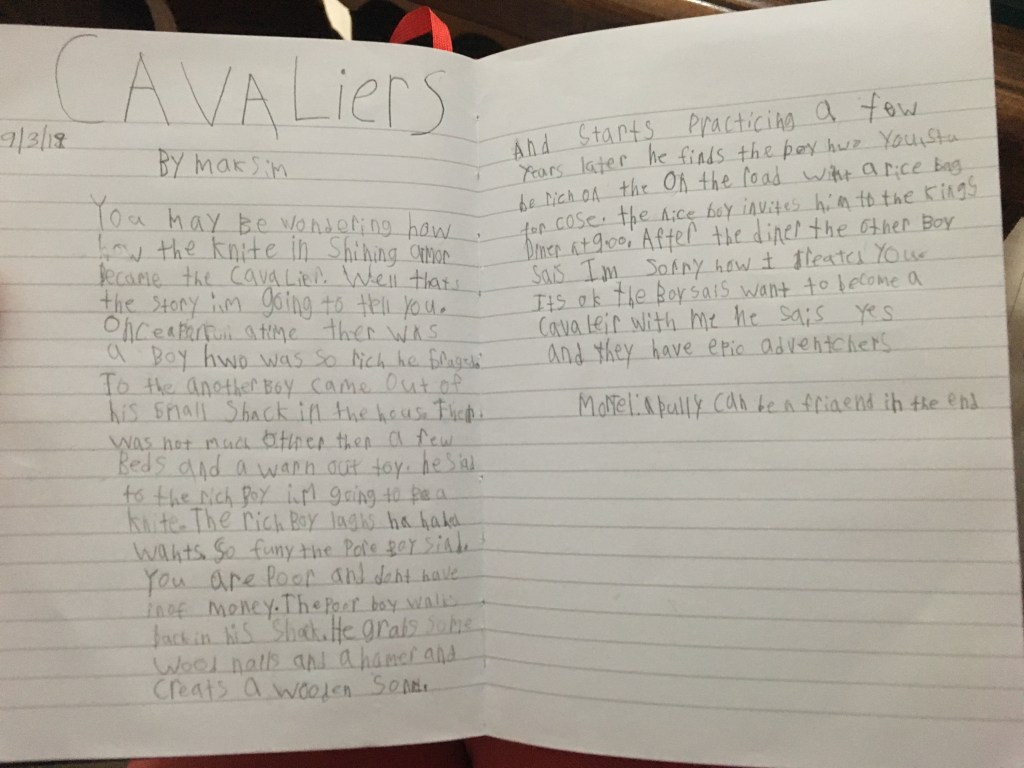 CAVALiers
9/3/18
BY Maksim
You may Be wondering how
how the Knite in Shining armor
became the Cavalier. Well thats
the story im going to tell you.
a time ther was
a Boy hwo was so rich he
To the another Boy came out of
his small Shack in the house
was not much then a few
Beds and a warn out toy. he Sial
to the rich Boy im going to be a
Knite. The rich Boy laghs ha haha
Wants. So funy the Pore Boy Sial.
You are Poor and dont have
inof money. The Poor boy walks
back in his Shack. He grabs some
Wood nails and a hamer and
Creats a wooden Sord.
And Starts Practicing a few
Years later he finds the boy hwo
be rich on the On the road with a rice bag
for cose. the nice boy invites him to the Kings
Diner at 9:00. After the diner the other Boy
sais Im Sorry how I treated You
Its ok the Boy sais want to become a
Cavaleir with me he sais yes
and they have epic adventchers
a bully can be a friaend in the end